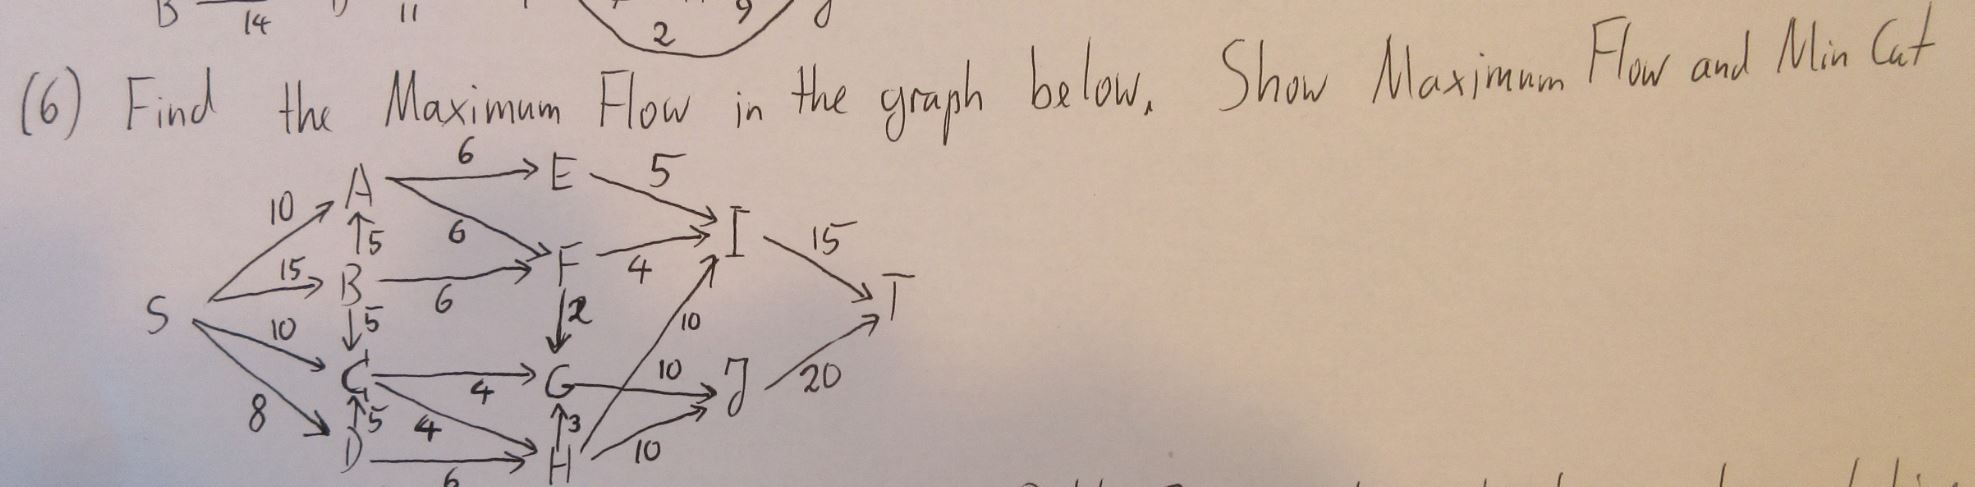 B 14 11 2 9
(6) Find the Maximum Flow in the graph below. Show Maximum Flow and Min Cut
6
A E 5
10
5 6 I 15
15 B 6 F 4 T
S 10 5 2 10
C 4 G 10 J 20
8 5 4 3
D 6 H 10